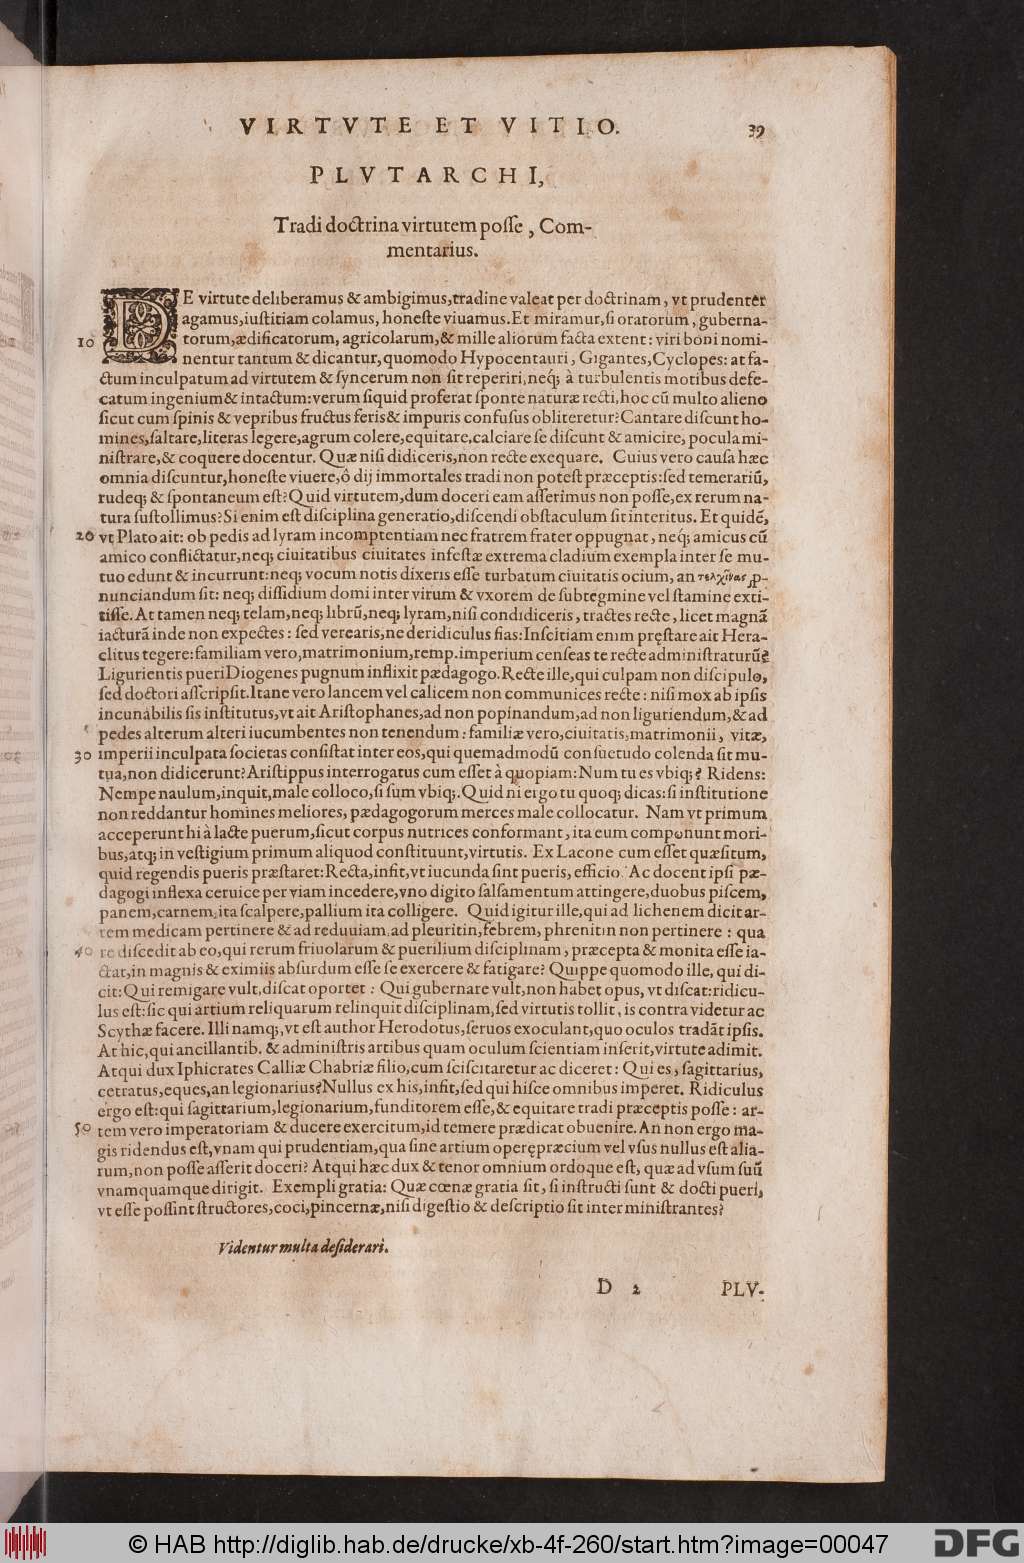 VIRTVTE ET VITIO. 39
PLVTARCHI,
Tradi doctrina virtutem posse, Com-
mentarius.
DE virtute deliberamus & ambigimus, tradine valeat per doctrinam, vt prudenter
agamus, iustitiam colamus, honeste viuamus. Et miramur, si oratorum, guberna-
10 torum, ædificatorum, agricolarum, & mille aliorum facta extent: viri boni nomi-
nentur tantum & dicantur, quomodo Hypocentauri, Gigantes, Cyclopes: at fa-
ctum inculpatum ad virtutem & syncerum non sit reperiri, neq; à turbulentis motibus defe-
catum ingenium & intactum: verum siquid proferat sponte naturæ recti, hoc cū multo alieno
sicut cum spinis & vepribus fructus feris & impuris confusus obliteretur? Cantare discunt ho-
mines, saltare, literas legere, agrum colere, equitare, calciare se discunt & amicire, pocula mi-
nistrare, & coquere docentur. Quæ nisi didiceris, non recte exequare. Cuius vero causa hæc
omnia discuntur, honeste viuere, ô dij immortales tradi non potest præceptis: sed temerariū,
rudeq; & spontaneum est? Quid virtutem, dum doceri eam asserimus non posse, ex rerum na-
tura sustollimus? Si enim est disciplina generatio, discendi obstaculum sit interitus. Et quidē,
20 vt Plato ait: ob pedis ad lyram incomptentiam nec fratrem frater oppugnat, neq; amicus cū
amico conflictatur, neq; ciuitatibus ciuitates infestæ extrema cladium exempla inter se mu-
tuo edunt & incurrunt: neq; vocum notis dixeris esse turbatum ciuitatis ocium, an τελχῖνας ꝓ-
nunciandum sit: neq; dissidium domi inter virum & vxorem de subtegmine vel stamine exti-
tisse. At tamen neq; telam, neq; librū, neq; lyram, nisi condidiceris, tractes recte, licet magnā
iacturā inde non expectes: sed verearis, ne deridiculus fias: Inscitiam enim pręstare ait Hera-
clitus tegere: familiam vero, matrimonium, remp. imperium censeas te recte administraturū?
Ligurientis pueri Diogenes pugnum inflixit pædagogo. Recte ille, qui culpam non discipulo,
sed doctori asscripsit. Itane vero lancem vel calicem non communices recte: nisi mox ab ipsis
incunabilis sis institutus, vt ait Aristophanes, ad non popinandum, ad non liguriendum, & ad
pedes alterum alteri iucumbentes non tenendum: familiæ vero, ciuitatis, matrimonii, vitæ,
30 imperii inculpata societas consistat inter eos, qui quemadmodū consuetudo colenda sit mu-
tua, non didicerunt? Aristippus interrogatus cum esset à quopiam: Num tu es vbiq;? Ridens:
Nempe naulum, inquit, male colloco, si sum vbiq;. Quid ni ergo tu quoq; dicas: si institutione
non reddantur homines meliores, pædagogorum merces male collocatur. Nam vt primum
acceperunt hi à lacte puerum, sicut corpus nutrices conformant, ita eum componunt mori-
bus, atq; in vestigium primum aliquod constituunt, virtutis. Ex Lacone cum esset quæsitum,
quid regendis pueris præstaret: Recta, infit, vt iucunda sint pueris, efficio. Ac docent ipsi pæ-
dagogi inflexa ceruice per viam incedere, vno digito salsamentum attingere, duobus piscem,
panem, carnem, ita scalpere, pallium ita colligere. Quid igitur ille, qui ad lichenem dicit ar-
tem medicam pertinere & ad reduuiam, ad pleuritin, febrem, phrenitin non pertinere: qua
40 re discedit ab eo, qui rerum friuolarum & puerilium disciplinam, præcepta & monita esse ia-
ctat, in magnis & eximiis absurdum esse se exercere & fatigare? Quippe quomodo ille, qui di-
cit: Qui remigare vult, discat oportet: Qui gubernare vult, non habet opus, vt discat: ridicu-
lus est: sic qui artium reliquarum relinquit disciplinam, sed virtutis tollit, is contra videtur ac
Scythæ facere. Illi namq;, vt est author Herodotus, seruos exoculant, quo oculos tradāt ipsis.
At hic, qui ancillantib. & administris artibus quam oculum scientiam inserit, virtute adimit.
Atqui dux Iphicrates Calliæ Chabriæ filio, cum sciscitaretur ac diceret: Qui es, sagittarius,
cetratus, eques, an legionarius? Nullus ex his, infit, sed qui hisce omnibus imperet. Ridiculus
ergo est: qui sagittarium, legionarium, funditorem esse, & equitare tradi præceptis posse: ar-
50 tem vero imperatoriam & ducere exercitum, id temere prædicat obuenire. An non ergo ma-
gis ridendus est, vnam qui prudentiam, qua sine artium operępræcium vel vsus nullus est alia-
rum, non posse asserit doceri? Atqui hæc dux & tenor omnium ordoque est, quæ ad vsum suū
vnamquamque dirigit. Exempli gratia: Quæ cœnæ gratia sit, si instructi sunt & docti pueri,
vt esse possint structores, coci, pincernæ, nisi digestio & descriptio sit inter ministrantes?
Videntur multa desiderari.
D 2 PLV-
© HAB http://diglib.hab.de/drucke/xb-4f-260/start.htm?image=00047 DFG